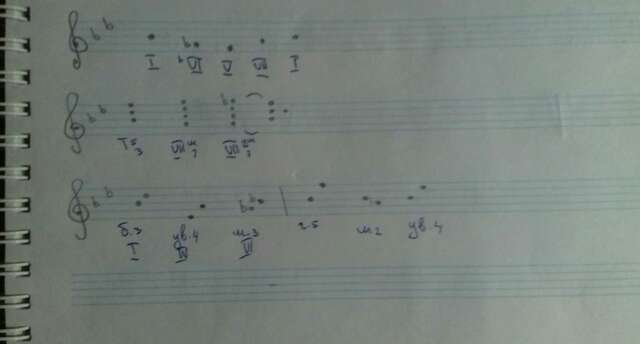 I ♭VI V VII I
T5/3 VIIм7 VII
б.3 ув.4 м.3 ч.5 м2 ув.4
I IV VI